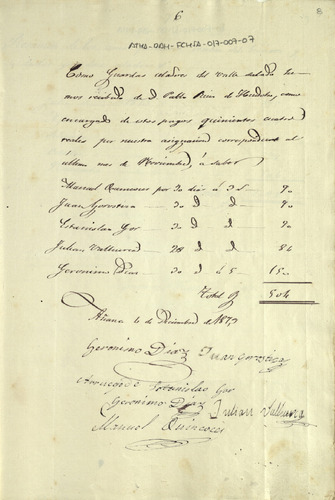 6
8
ATHA-DAH-FCHSA-017-007-07
Como Guardas celadores del Valle salado he-
mos recibido de D. Pablo Ruiz de
encargado de estos pagos quinientos cuatro
reales por nuestra asignacion correspondiente al
último mes de Noviembre, á saber
Manuel Quincoces por 30 dias á 3 90
Juan Gorostiza 30 d d 90
Estanislao Gor 30 d d 90
Julian Valluerca 28 d d 84
Geronimo Diaz 30 d 5 150
Total 504
Añana Diciembre de
Geronimo Diaz Juan Gorostiza
Estanislao Gor
Geronimo Diaz Julian Valluerca
Manuel Quincoces